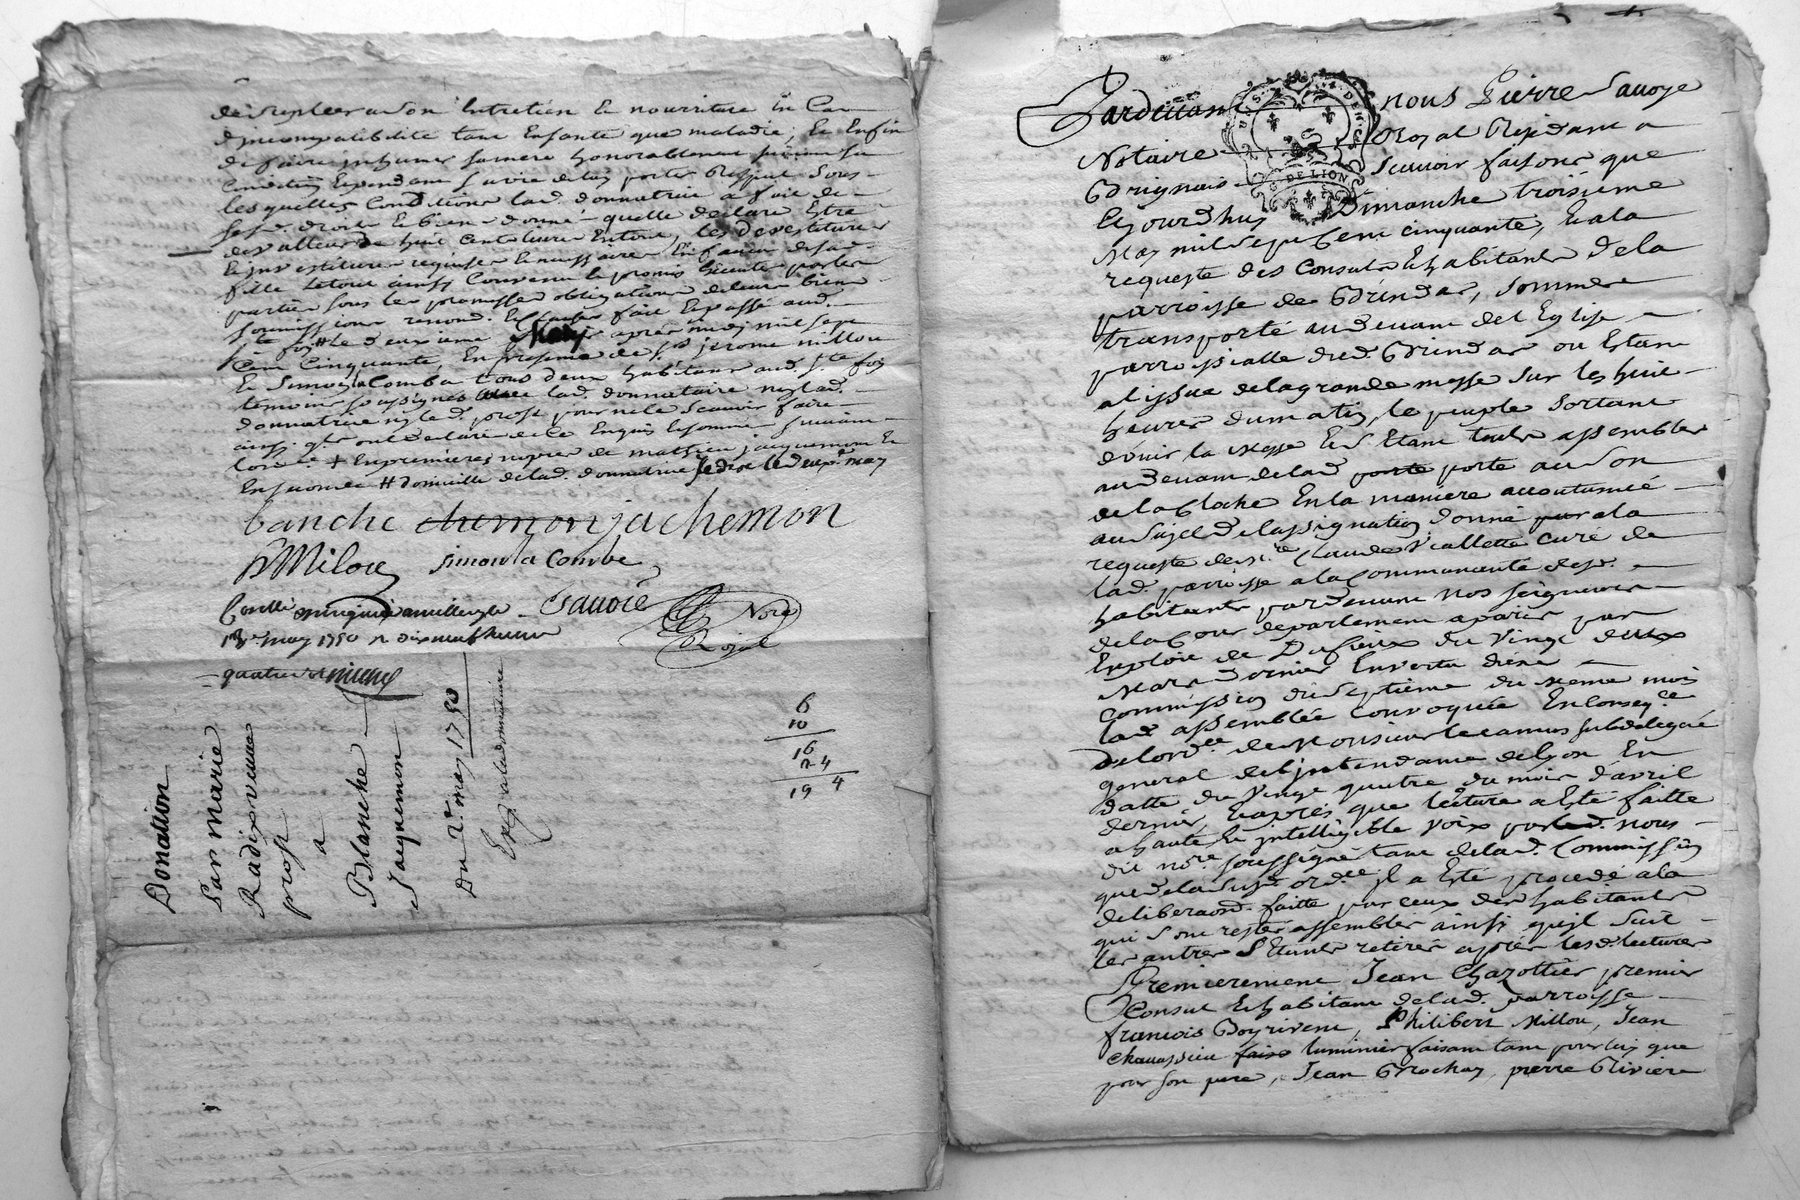 de supléer a son Entretien Et nouriture En Cas
d'incompatibilité tant Enfante que maladie, Et Enfin
de faire inhumer sa mere honorablement suivant sa
Condition Et pendant sa vie de luy porter Respect Sous
les quelles Conditions lad. donnatrice a fait
droits Et bien donné quelle declare Etre
de valleur de huit Cent livres En tout, les devestitures
Et investitures requises Et necessaires En faveur de sad.
fille Le tout ainsy Convenu Et promis Executer par les
parties sous les promesses obligations de leurs biens
soumissions renond. Et clauses fait Et passé aud.
Ste foy # le deuxieme May après midy mil sept
Cent Cinquante, En presence de Sr jerome millou
Et Simon la Comba tous deux habitans aud. Ste foy
temoins soussignes avec lad. donnataire non lad.
donnatrice ny led. prost pour ne le sçavoir faire
ainsi qu'ils ont declaré de ce Enquis Et sommé suivant
lord.ce + En premieres nopces de mathieu jacquemont Et
En second # domicille de lad. donnatrice
banche chemon jachemon
Milou simon la Combe
Controllé
may 1750 R dix neuf livres
Savoie Nore Royal
quatre s.
Donation
Par marie
Radix veuve
prost
a
Blanche
Jacquemon
Du 2e. may 1750
Exp. a la donnataire
6
10
16
2 4
19 4
Pardevant nous Pierre Savoye
Notaire Royal Residant a
G. DE LION
Brignais Scavoir faisons que
Cejourdhuy Dimanche troisieme
May mil sept Cent cinquante, Et a la
requeste des Consuls Et habitants de la
parroisse de Brindas, sommes
transporté au devant de l'Eglise
parroissialle dud. Brindas ou Etant
a l'issue de la grande messe sur les huit
heures du matin, le peuple sortant
d'ouir la Messe Et S'Etant tous assembles
au devant de lad. porte porte au Son
de la Cloche En la maniere accoutumée
au Sujet de lassignation donné par a la
requeste de Sire Claude Viallette Curé de
lad. parroisse a la Communauté desd.
habitants pardevant nos seigneurs
de la Cour de parlement a paris par
Exploit de Dufieux du Vingt deux
Mars dernier En vertu d'une
Commission du Septieme du Meme mois
lad. assemblée convoquée En conseq.ce
De lord.ce de Monsieur le camus subdelegué
general de l'jntendance de Lyon En
datte du Vingt quatre du mois d'avril
dernier, Et après que lecture a Esté faitte
a haute Et intelligible voix par led. nous
dit no.re soussigné tant de lad. Commission
que de la Susd. ord.ce il a Esté procedé a la
deliberaon. faitte par ceux des habitants
qui sont restés assembles ainsi qu'il suit
les autres S'Etants retirés après lesd. lectures
Premierement Jean Chazottier premier
Consul Et habitant de lad. parroisse
francois Boyrivent, Philibert Millou, Jean
Chavassieu fais luminier faisant tant pour luy que
pour son pere, Jean Brochay, pierre Riviere